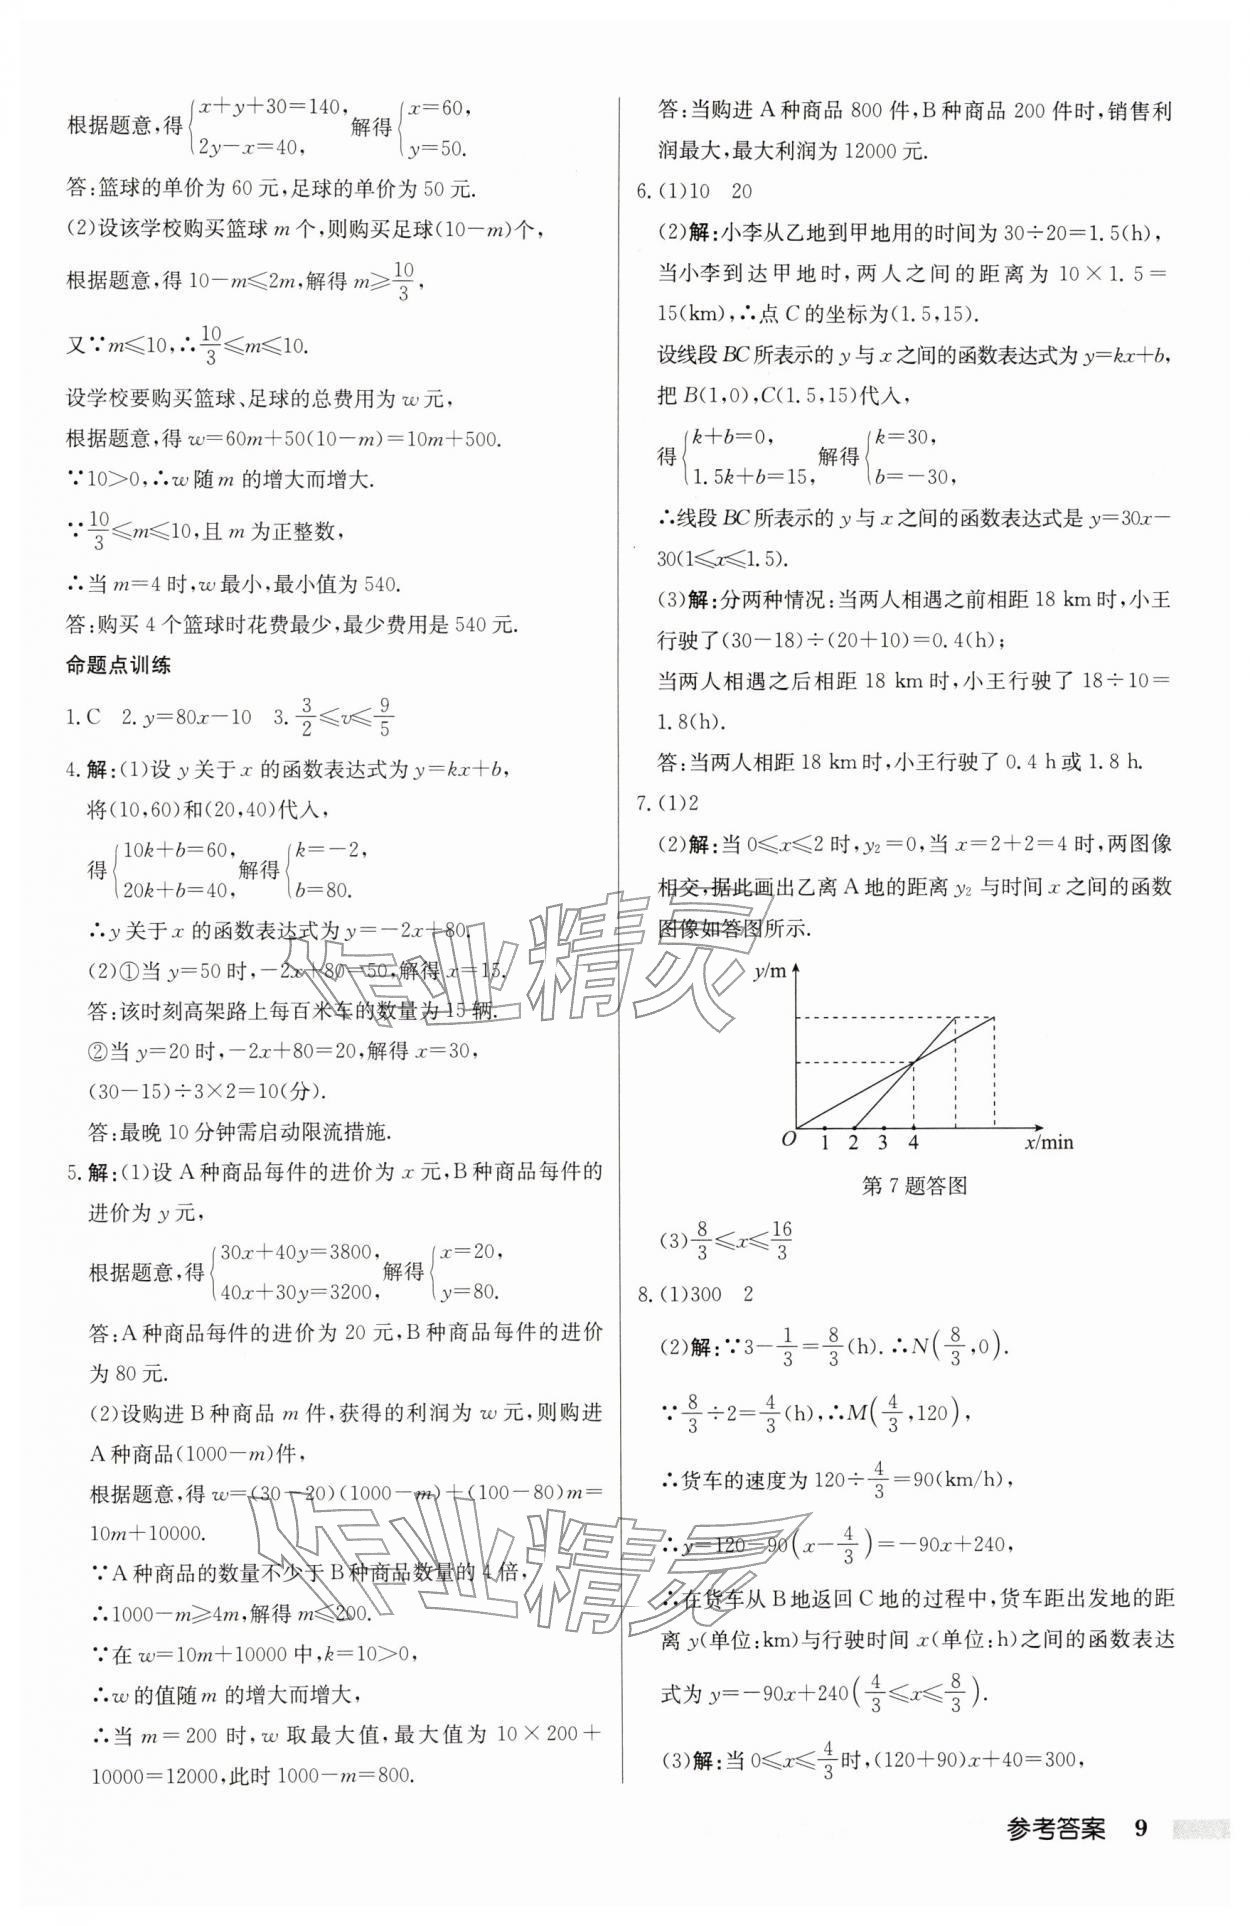 根据题意,得{x+y+30=140, 2y-x=40, 解得{x=60, y=50.
答:篮球的单价为 60 元,足球的单价为 50 元.
(2)设该学校购买篮球 m 个,则购买足球(10-m)个,
根据题意,得 10-m≤2m,解得 m≥10/3,
又∵m≤10,∴10/3≤m≤10.
设学校要购买篮球、足球的总费用为 w 元,
根据题意,得 w=60m+50(10-m)=10m+500.
∵10>0,∴w 随 m 的增大而增大.
∵10/3≤m≤10,且 m 为正整数,
∴当 m=4 时,w 最小,最小值为 540.
答:购买 4 个篮球时花费最少,最少费用是 540 元.
命题点训练
1.C 2.y=80x-10 3.3/2≤v≤9/5
4.解:(1)设 y 关于 x 的函数表达式为 y=kx+b,
将(10,60)和(20,40)代入,
得{10k+b=60, 20k+b=40, 解得{k=-2, b=80.
∴y 关于 x 的函数表达式为 y=-2x+80.
(2)①当 y=50 时,-2x+80=50,解得 x=15.
答:该时刻高架路上每百米车的数量为 15 辆.
②当 y=20 时,-2x+80=20,解得 x=30,
(30-15)÷3×2=10(分).
答:最晚 10 分钟需启动限流措施.
5.解:(1)设 A 种商品每件的进价为 x 元,B 种商品每件的
进价为 y 元,
根据题意,得{30x+40y=3800, 40x+30y=3200, 解得{x=20, y=80.
答:A 种商品每件的进价为 20 元,B 种商品每件的进价
为 80 元.
(2)设购进 B 种商品 m 件,获得的利润为 w 元,则购进
A 种商品(1000-m)件,
根据题意,得 w=(30-20)(1000-m)+(100-80)m=
10m+10000.
∵A 种商品的数量不少于 B 种商品数量的 4 倍,
∴1000-m≥4m,解得 m≤200.
∵在 w=10m+10000 中,k=10>0,
∴w 的值随 m 的增大而增大,
∴当 m=200 时,w 取最大值,最大值为 10×200+
10000=12000,此时 1000-m=800.
答:当购进 A 种商品 800 件,B 种商品 200 件时,销售利
润最大,最大利润为 12000 元.
6.(1)10 20
(2)解:小李从乙地到甲地用的时间为 30÷20=1.5(h),
当小李到达甲地时,两人之间的距离为 10×1.5=
15(km),∴点 C 的坐标为(1.5,15).
设线段 BC 所表示的 y 与 x 之间的函数表达式为 y=kx+b,
把 B(1,0),C(1.5,15)代入,
得{k+b=0, 1.5k+b=15, 解得{k=30, b=-30,
∴线段 BC 所表示的 y 与 x 之间的函数表达式是 y=30x-
30(1≤x≤1.5).
(3)解:分两种情况:当两人相遇之前相距 18 km 时,小王
行驶了(30-18)÷(20+10)=0.4(h);
当两人相遇之后相距 18 km 时,小王行驶了 18÷10=
1.8(h).
答:当两人相距 18 km 时,小王行驶了 0.4 h 或 1.8 h.
7.(1)2
(2)解:当 0≤x≤2 时,y₂=0,当 x=2+2=4 时,两图像
相交,据此画出乙离 A 地的距离 y₂ 与时间 x 之间的函数
图像如答图所示.
y/m
O 1 2 3 4 x/min
第 7 题答图
(3)8/3≤x≤16/3
8.(1)300 2
(2)解:∵3-1/3=8/3(h).∴N(8/3,0).
∵8/3÷2=4/3(h),∴M(4/3,120),
∴货车的速度为 120÷4/3=90(km/h),
∴y=120-90(x-4/3)=-90x+240,
∴在货车从 B 地返回 C 地的过程中,货车距出发地的距
离 y(单位:km)与行驶时间 x(单位:h)之间的函数表达
式为 y=-90x+240(4/3≤x≤8/3).
(3)解:当 0≤x≤4/3时,(120+90)x+40=300,
作业精灵
作业精灵
参考答案 9